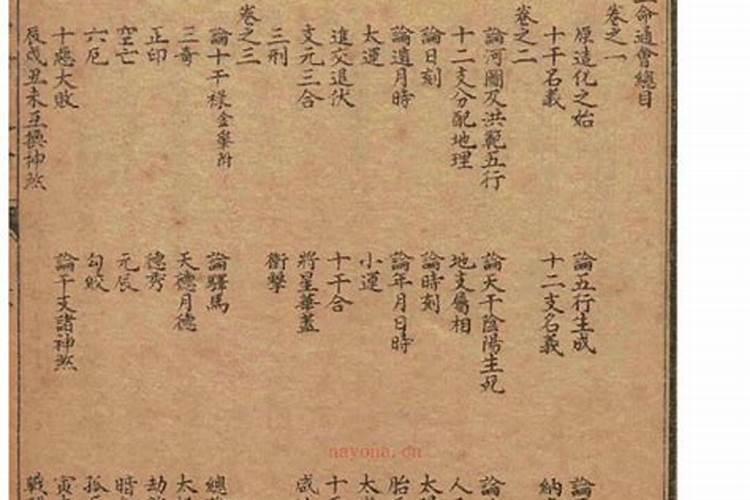 命通會總目
卷之一
原造化之始 論五行生成 論
十干名義 十二支名義 納
卷之二
論河圖及洪範五行 論天干陰陽生死 論
十二支分配地理 地支屬相 人
論日刻 論時刻 太
論遺月時 論年月日時 胎
太運 小運 太
進交退伏 十干合 十
支元三合 將星華蓋 咸
三刑 衝擊
卷之三
論十干祿金轝附 論驛馬 總
三奇 天德月德 太
正印 德秀 劫
空亡 元辰 暗
六厄 勾絞 孤
十惡大敗 論干支諸神煞 寅
辰戌丑未互換神煞 戰
nayona.cn